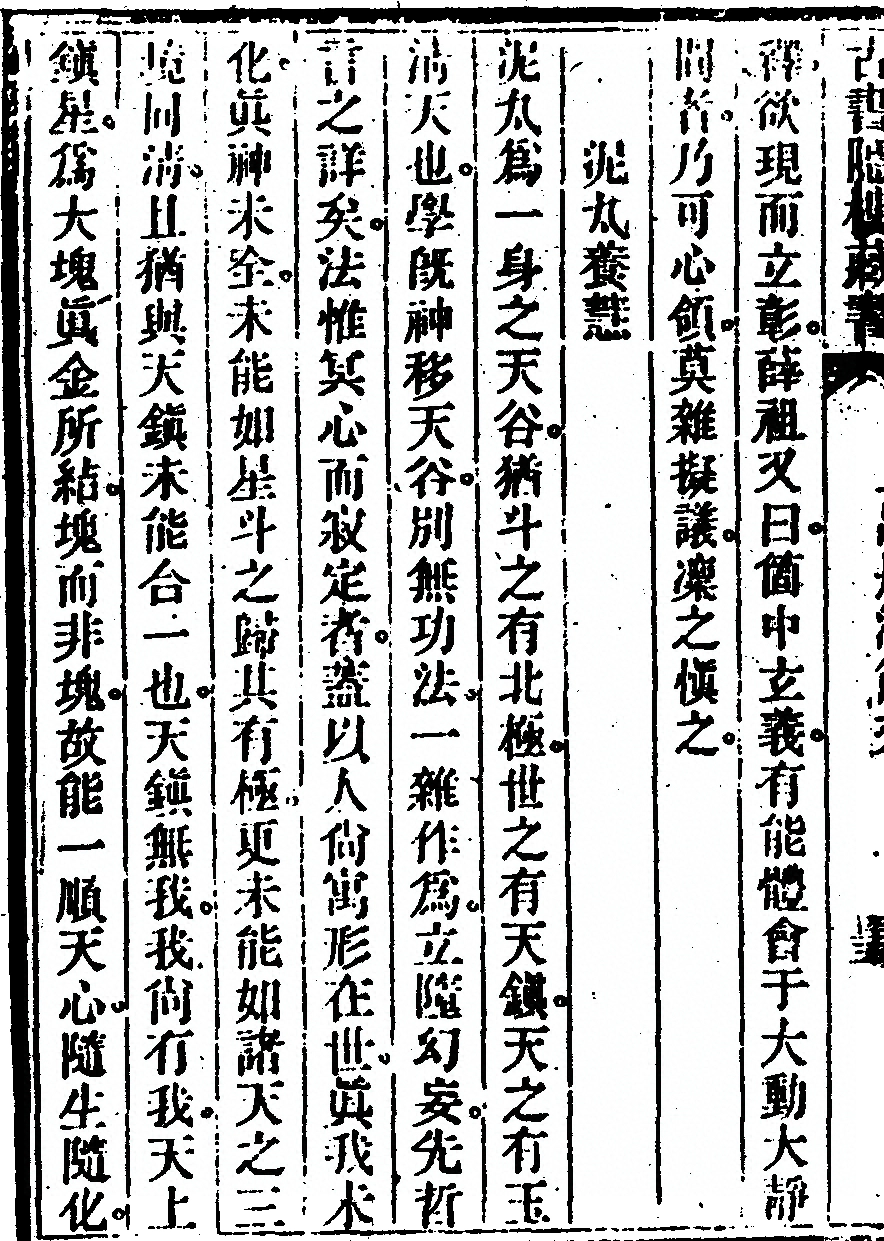 古書隱樓藏書
釋欲現而立彰薛祖又曰箇中玄義有能體會于大動大靜
間者乃可心領莫雜擬議凜之慎之
泥丸養慧
泥丸爲一身之天谷猶斗之有北極世之有天鎮天之有玉
清天也學旣神移天谷別無功法一雜作爲立墮幻妄先哲
言之詳矣法惟冥心而寂定者蓋以人尙寓形在世眞我未
化眞神未全未能如星斗之歸其有極更未能如諸天之三
境同淸且猶與天鎮未能合一也天鎮無我我尙有我天上
鎮星爲大塊眞金所結塊而非塊故能一順天心隨生隨化